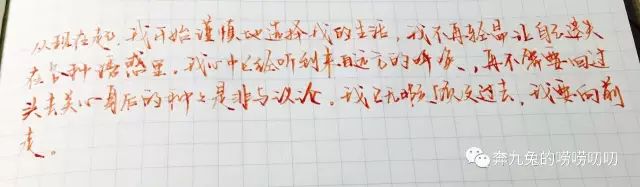 从现在起，我开始谨慎地选择我的生活，我不再轻易让自己迷失
在各种诱惑里。我心中已经听到来自远方的呼唤，再不需要回过
头去关心身后的种种是非与议论。我已无暇顾及过去，我要向前
走。
奔九兔的唠唠叨叨